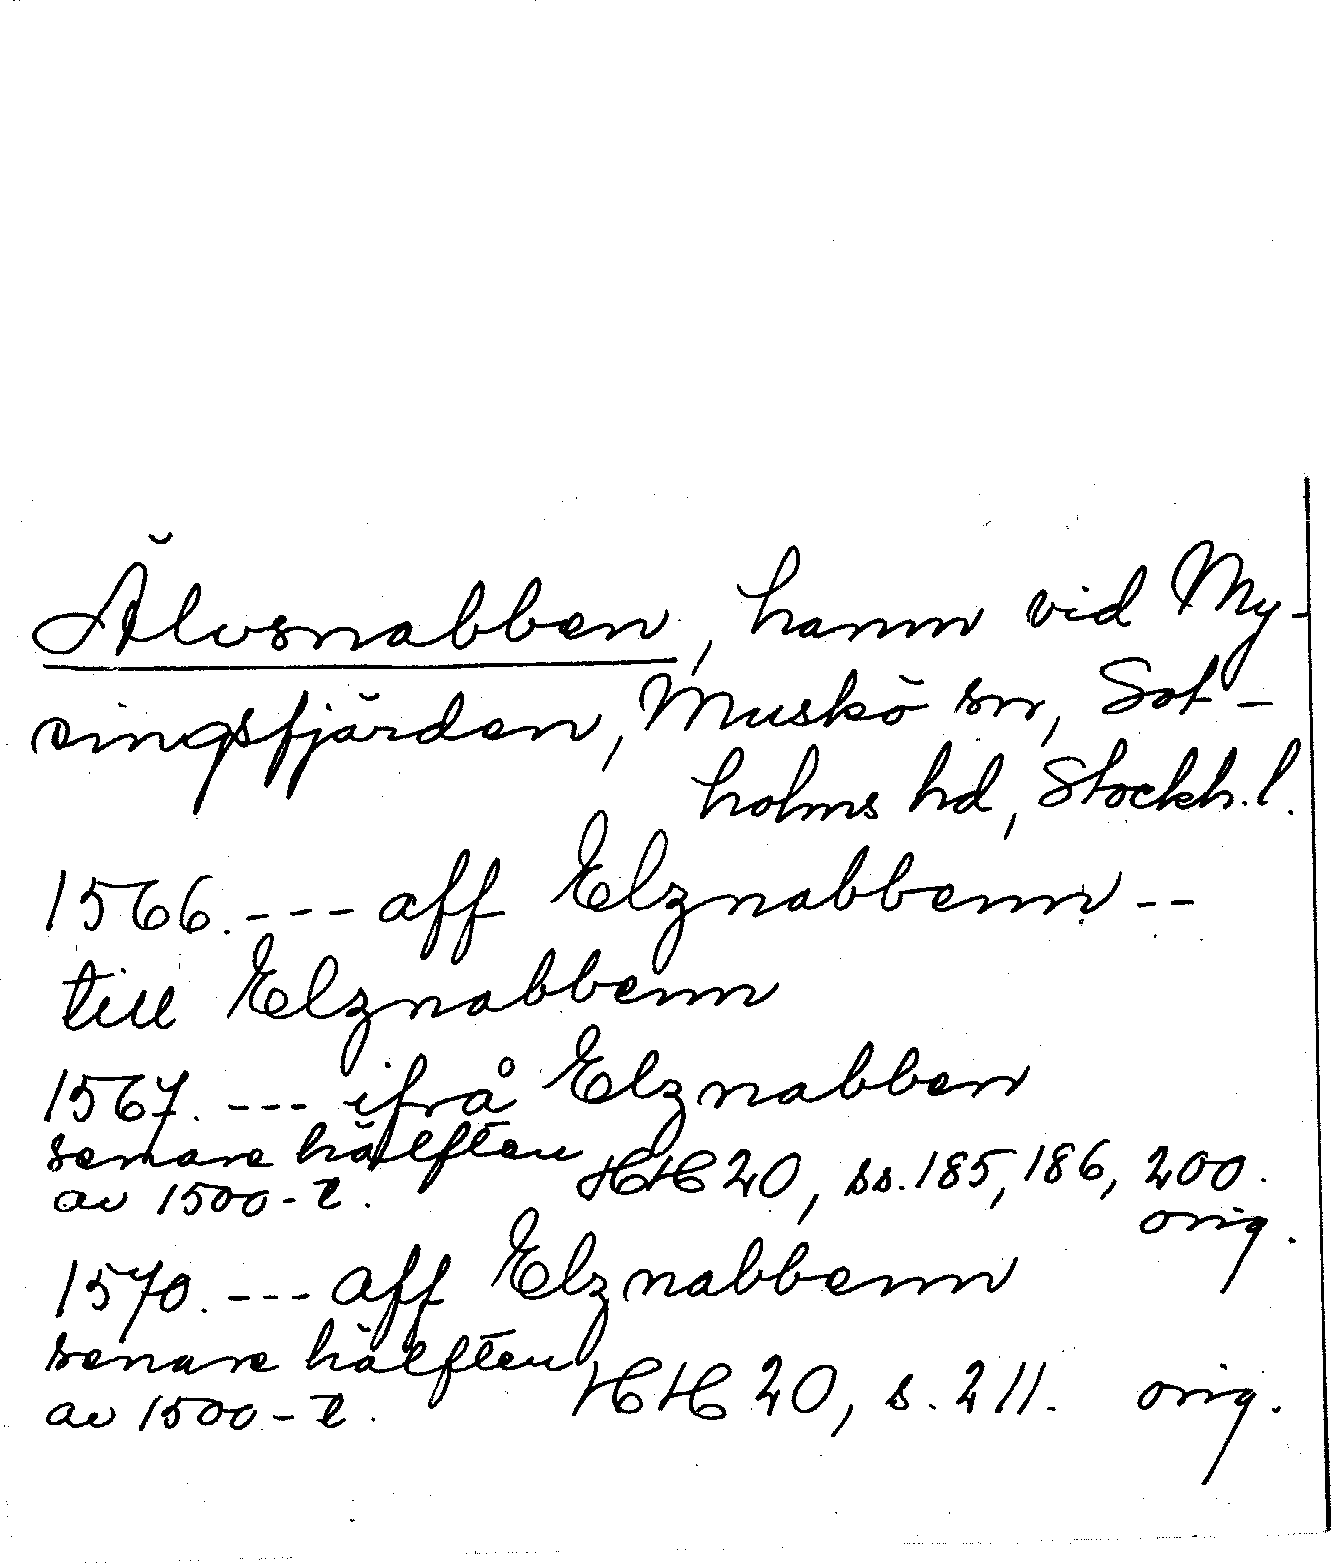 Älvsnabben, hamn vid My-
singsfjärden, Muskö sn, Sot-
holms hd, Stockh. l.
1566. --- aff Elznabbenn --
till Elznabbenn
1567. --- ifrå Elznabben
senare hälften
av 1500-t. HH 20, ss. 185, 186, 200.
orig.
1570. --- aff Elznabbenn
senare hälften
av 1500-t. HH 20, s. 211. orig.